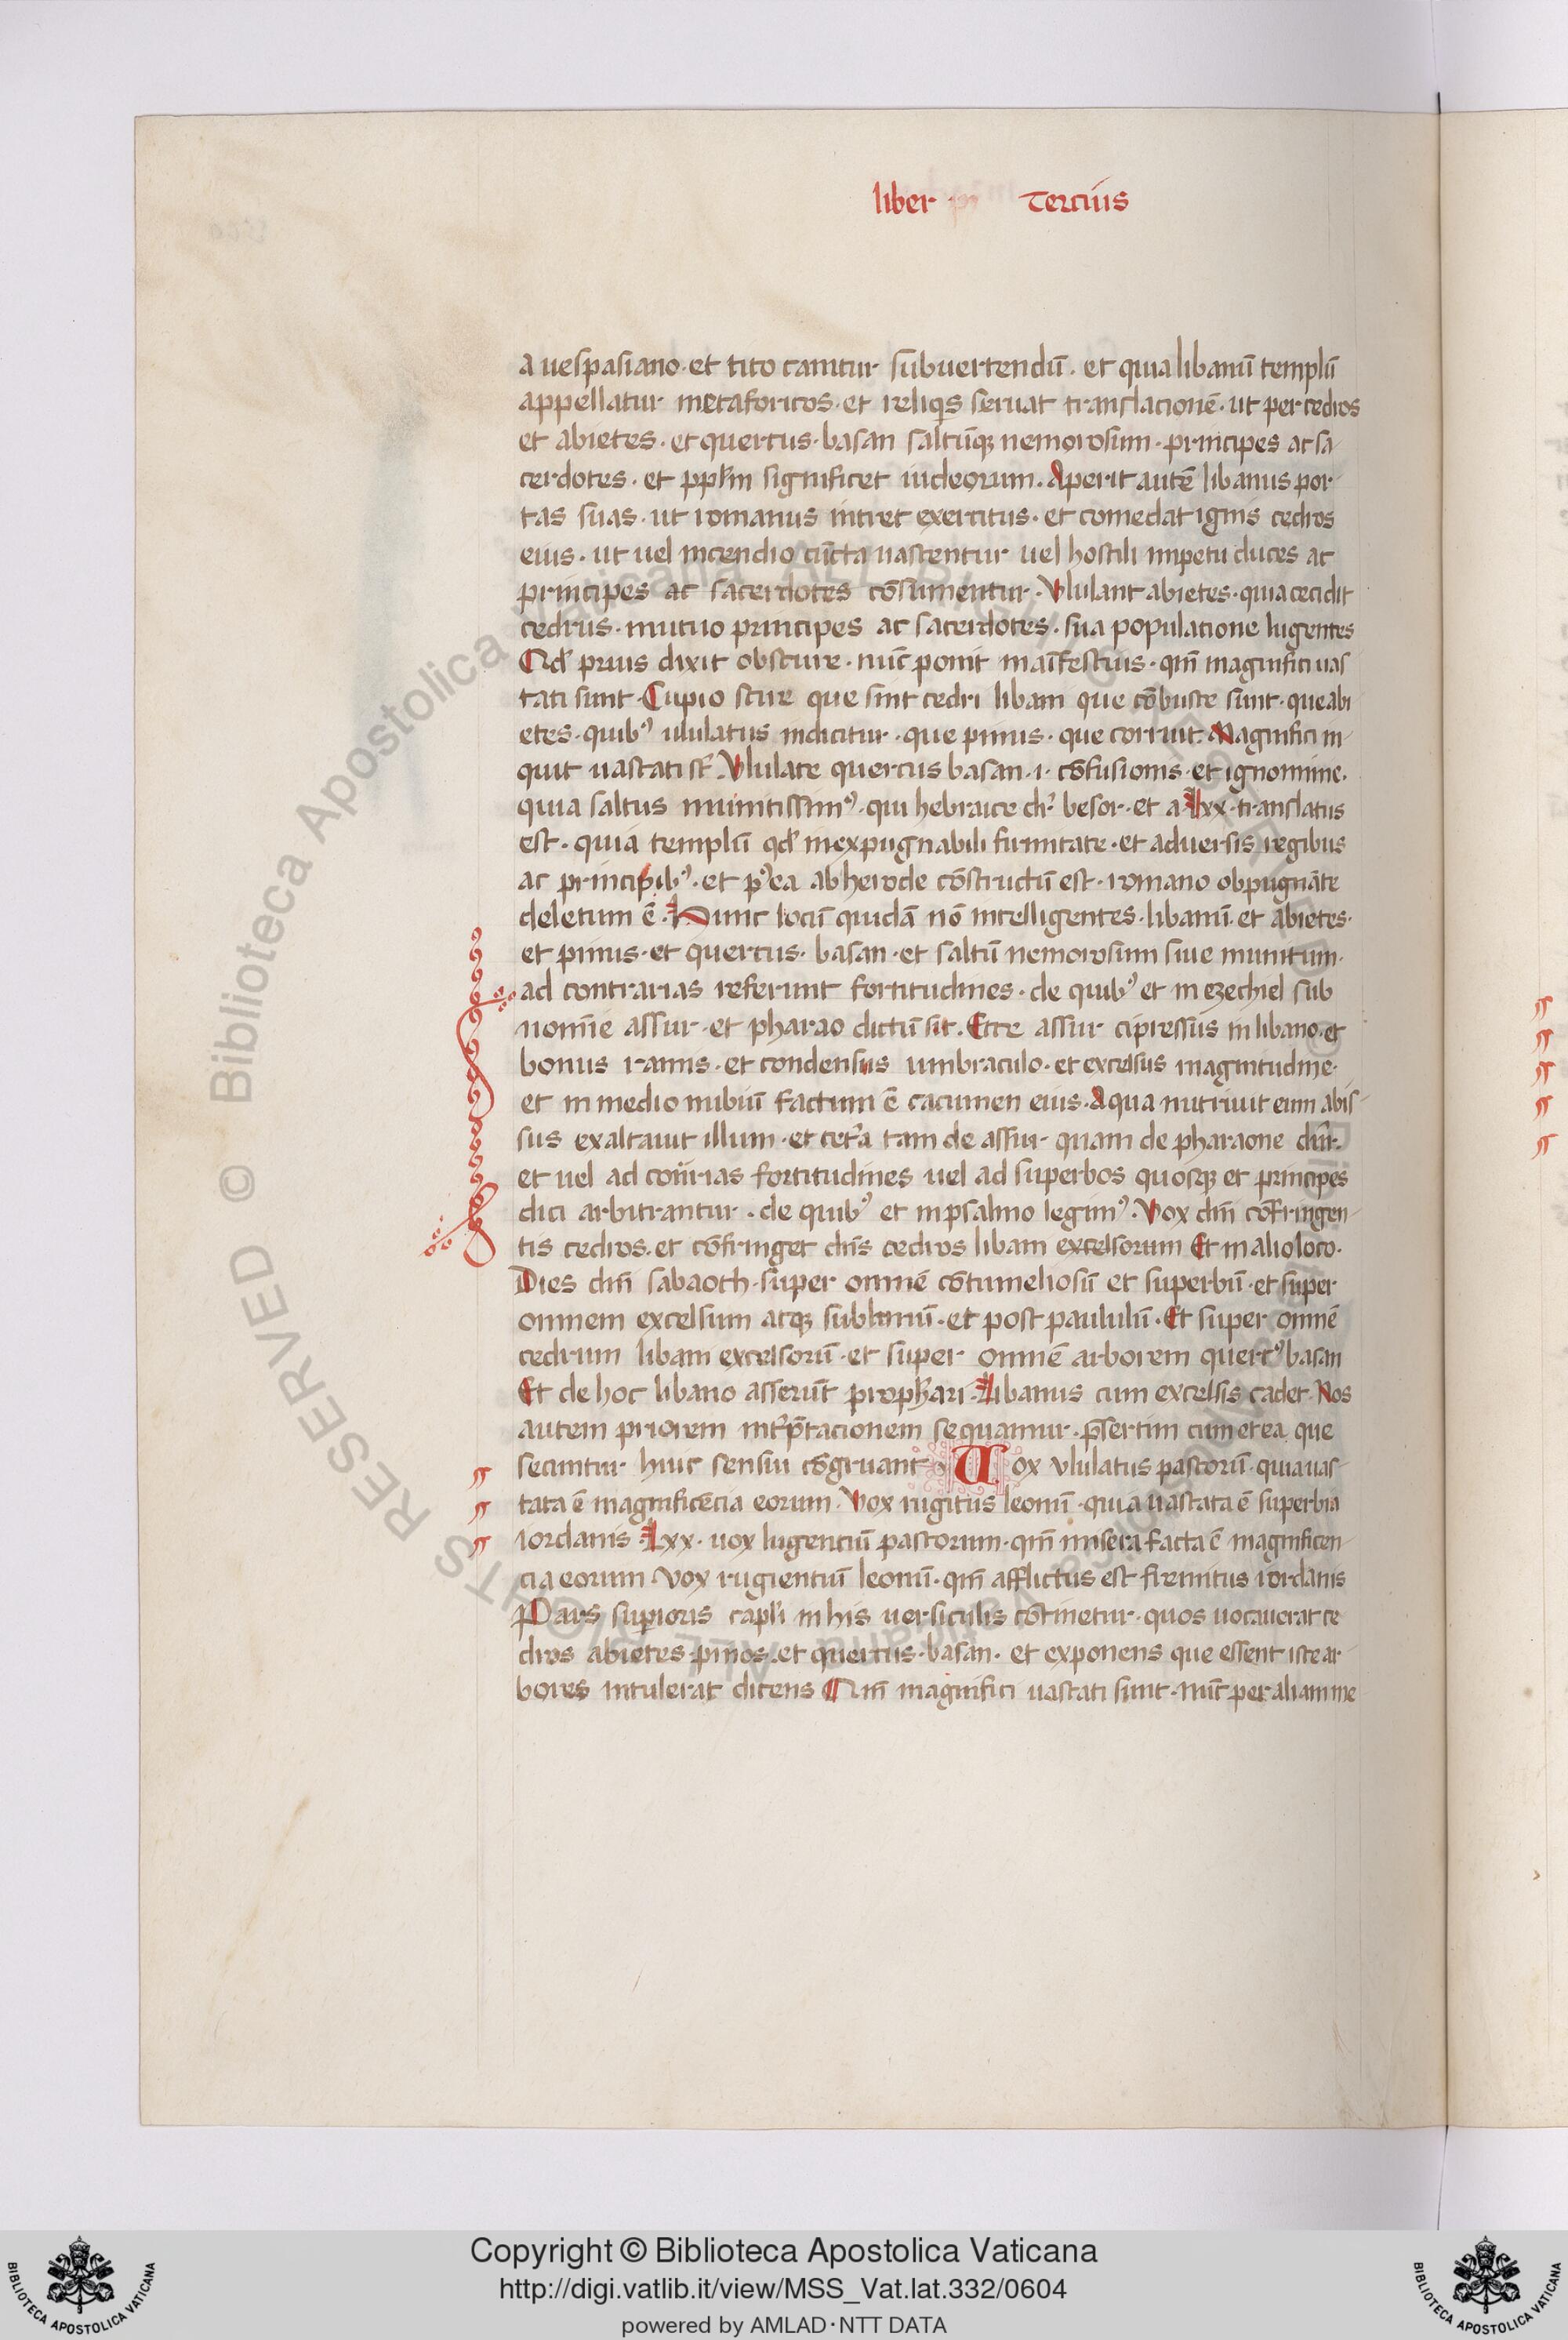 liber tercius
a uespasiano · et tito canitur subuertendū · et quia libanū templū
appellatur metaforicos · et reliqs seruat translacionē · ut per cedros
et abietes · et quercus · basan saltūqꝫ nemorosum · principes ac sa-
cerdotes · et pplm̄ significet iudeorum · Aperit autē libanus por-
tas suas · ut romanus intret exercitus · et comedat ignis cedros
eius · ut uel incendio cūcta uastentur uel hostili impetu duces ac
principes ac sacerdotes cōsumentur · Vlulant abietes · quia cecidit
cedrus · mutuo principes ac sacerdotes · sua populacione lugentes
Qd' prius dixit obscure · nūc ponit manīfestius · qm̄ magnifici uas
tati sunt · Cupio scire que sint cedri libani que cōbuste sunt · que abi
etes · quibꝰ ululatus indicitur · que pinus · que corruit. Magnifici in-
quit uastati st̄. Vlulate quercus basan · i · cōfusionis · et ignominie ·
quia saltus munitissimꝰ · qui hebraice dr̄ besor · et a lxx · translatus
est · quia templū qd' inexpugnabili firmitate · et aduersis regibus
ac principibꝰ · et pꝰea ab herode cōstructū est · romano obpugnāte
deletum ē · Hunc locū quidā nō intelligentes · libanū et abietes ·
et pinus · et quercus · basan · et saltū nemorosum siue munitum ·
ad contrarias referunt fortitudines · de quibꝰ et in ezechiel sub
nomīe assur · et pharao dictū sit. Ecce assur cipressus in libano · et
bonus ramis · et condensus umbraculo · et excelsus magnitudine ·
et in medio nubiū factum ē cacumen eius · Aqua nutriuit eum abis-
sus exaltauit illum · et cetā tam de assur quam de pharaone dnr̄ ·
et uel ad cōtrarias fortitudines uel ad superbos quosqꝫ et principes
dici arbitrantur · de quibꝰ et in psalmo legimꝰ · Vox dnī cōfringen-
tis cedros · et cōfringet dn̄s cedros libani excelsorum Et in alio loco ·
Dies dnī sabaoth · super omnē cōtumeliosū et superbū · et super
omnem excelsum atqꝫ sublimū · et post paululū · Et super omnē
cedrum libani excelsorū · et super omnē arborem quercꝰ basan
Et de hoc libano asserūt prophari · Libanus cum excelsis cadet · Nos
autem priorem int'p̄tacionem sequamur · p̄sertim cum et ea que
secuntur huic sensui cōgruant · Vox vlulatus pastorū · quia uas-
tata ē magnificēcia eorum · Vox rugitus leonū · quia uastata ē superbia
iordanis · Lxx · uox lugentiū pastorum · qm̄ misera facta ē magnificen-
cia eorum · Vox rugientiū leonū · qm̄ afflictus est fremitus iordanis
Pars supioris capl'i in his uersiculis cōtinetur · quos uocauerat ce
dros abietes · pinos · et quercus · basan · et exponens que essent iste ar-
bores intulerat dicens Qm̄ magnifici uastati sunt · nūc per aliam me-
Copyright © Biblioteca Apostolica Vaticana
http://digi.vatlib.it/view/MSS_Vat.lat.332/0604
powered by AMLAD·NTT DATA
BIBLIOTECA APOSTOLICA VATICANA
BIBLIOTECA APOSTOLICA VATICANA